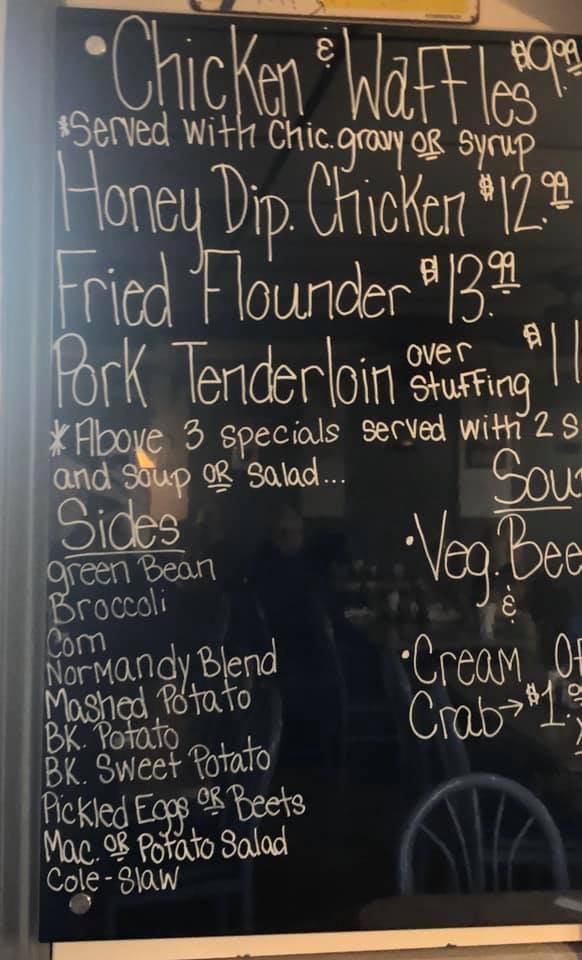 •Chicken & Waffles $9.99
*Served with Chic. gravy OR syrup
Honey Dip. Chicken $12.99
Fried Flounder $13.99
Pork Tenderloin over stuffing $11
*Above 3 specials served with 2 S
and soup OR salad...
Sides
green Bean
Broccoli
Corn
Normandy Blend
Mashed Potato
BK. Potato
BK. Sweet Potato
Pickled Eggs OR Beets
Mac. OR Potato Salad
Cole-Slaw
Sou
•Veg. Bee
&
•Cream Of
Crab→$1.9